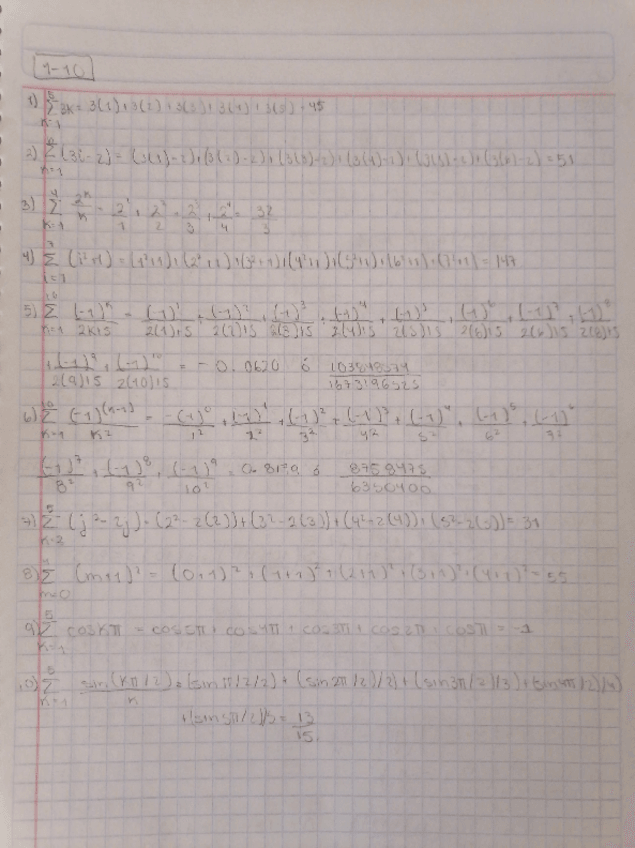 1-10
1) Σ_{k=1}^{5} 3k = 3(1)+3(2)+3(3)+3(4)+3(5) = 45
2) Σ_{k=1}^{6} (3i-2) = (3(1)-2)+(3(2)-2)+(3(3)-2)+(3(4)-2)+(3(5)-2)+(3(6)-2) = 51
3) Σ_{k=1}^{4} 2^k/k = 2^1/1 + 2^2/2 + 2^3/3 + 2^4/4 = 32/3
4) Σ_{i=1}^{7} (i²+1) = (1²+1)+(2²+1)+(3²+1)+(4²+1)+(5²+1)+(6²+1)+(7²+1) = 147
5) Σ_{k=1}^{10} (-1)^k/2k+5 = (-1)^1/2(1)+5 + (-1)^2/2(2)+5 + (-1)^3/2(3)+5 + (-1)^4/2(4)+5 + (-1)^5/2(5)+5 + (-1)^6/2(6)+5 + (-1)^7/2(6)+5 + (-1)^8/2(8)+5
+ (-1)^9/2(9)+5 + (-1)^10/2(10)+5 = -0.0620 ó
6) Σ_{k=1}^{10} (-1)^(k-1)/k² = -(-1)^0/1² + (-1)^1/2² + (-1)^2/3² + (-1)^3/4² + (-1)^4/5² + (-1)^5/6² + (-1)^6/7²
(-1)^7/8² + (-1)^8/9² + (-1)^9/10² = 0.8179 ó
7) Σ_{k=2}^{5} (j²-2j) = (2²-2(2))+(3²-2(3))+(4²-2(4))+(5²-2(5)) =
8) Σ_{m=0}^{4} (m+1)² = (0+1)²+(1+1)²+(2+1)²+(3+1)²+(4+1)² = 55
9) Σ_{k=1}^{5} cos kπ = cos5π + cos4π + cos3π + cos2π + cosπ = -1
10) Σ_{k=1}^{5} sin(kπ/2)/k = (sin π/2/2) + (sin2π/2)/2)+(sin3π/2)/3)+(sin4π/2)/4)
+(sin5π/2)/5 = 13/15